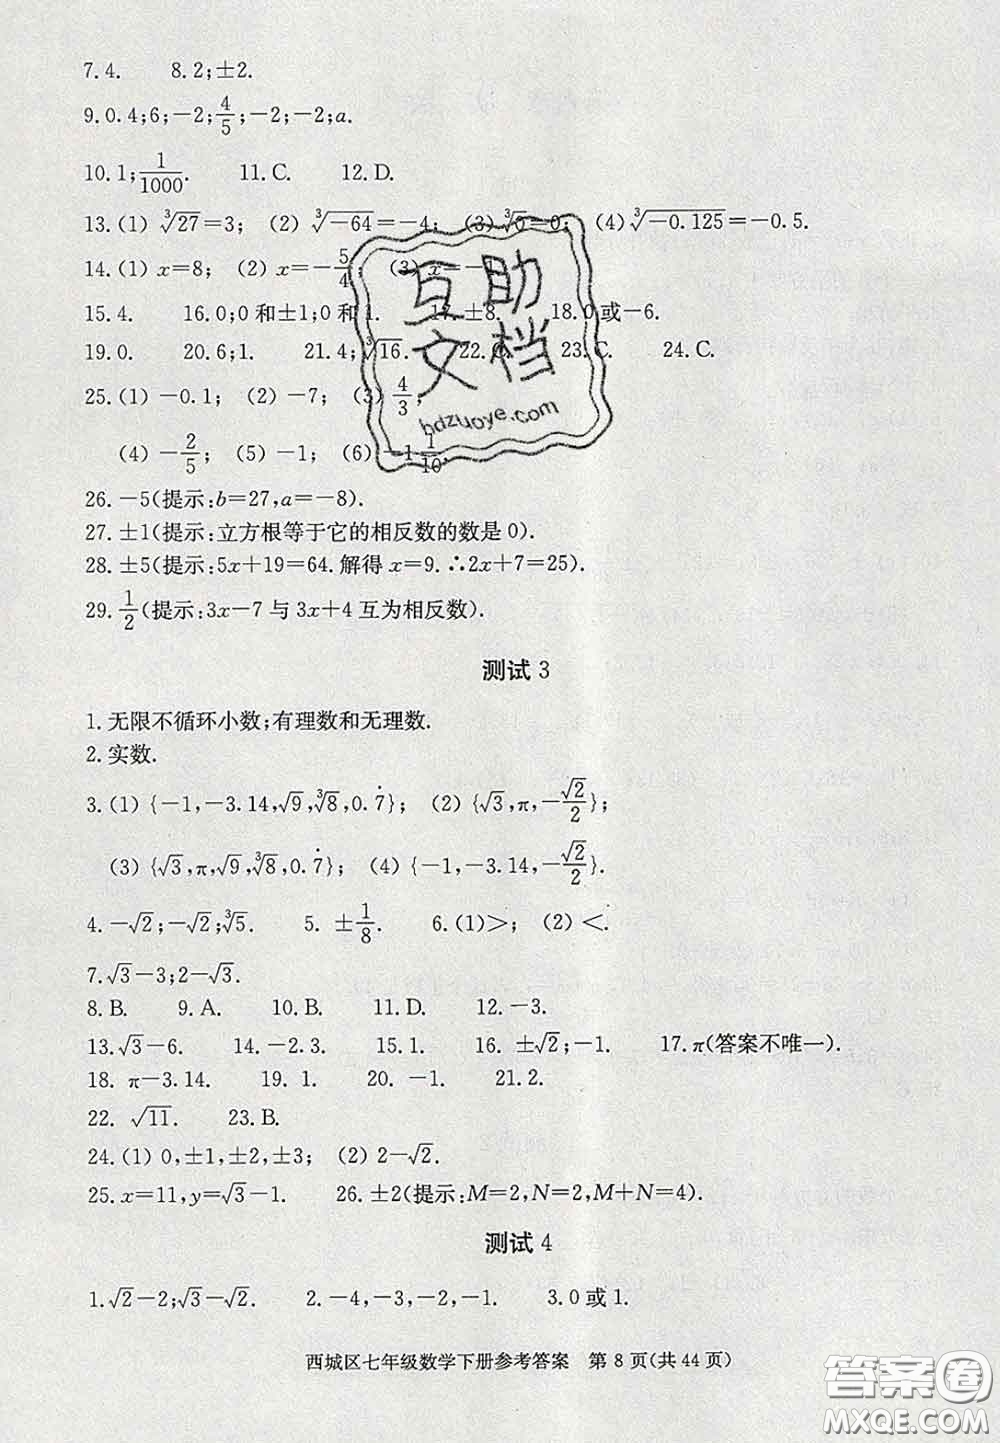 7.4. 8.2;±2.
9.0.4;6;-2;4/5;-2;-2;a.
10.1;1/1000. 11.C. 12.D.
13.(1) ∛27=3; (2) ∛-64=-4; (3) ∛0=0; (4) ∛-0.125=-0.5.
14.(1) x=8; (2) x=-5/4; (3) x=-1
15.4. 16.0;0和±1;0和1. 17.±8. 18.0或-6.
19.0. 20.6;1. 21.4;∛16. 22. 23.C. 24.C.
25.(1) -0.1; (2) -7; (3) 4/3;
(4) -2/5; (5) -1; (6) -1 1/10.
26.-5(提示:b=27,a=-8).
27.±1(提示:立方根等于它的相反数的数是0).
28.±5(提示:5x+19=64.解得x=9.∴2x+7=25).
29.1/2(提示:3x-7与3x+4互为相反数).
互助
文档
hdzuoye.com
测试3
1.无限不循环小数;有理数和无理数.
2.实数.
3.(1) {-1,-3.14,√9,∛8,0.7̇}; (2) {√3,π,-√2/2};
(3) {√3,π,√9,∛8,0.7̇}; (4) {-1,-3.14,-√2/2}.
4.-√2;-√2;∛5. 5. ±1/8. 6.(1)>; (2)<.
7.√3-3;2-√3.
8.B. 9.A. 10.B. 11.D. 12.-3.
13.√3-6. 14.-2.3. 15.1. 16. ±√2;-1. 17.π(答案不唯一).
18. π-3.14. 19. 1. 20. -1. 21.2.
22. √11. 23.B.
24.(1) 0,±1,±2,±3; (2) 2-√2.
25.x=11,y=√3-1. 26.±2(提示:M=2,N=2,M+N=4).
测试4
1.√2-2;√3-√2. 2.-4,-3,-2,-1. 3.0或1.
西城区七年级数学下册参考答案 第8页(共44页)
答案圈
MXQE.COM